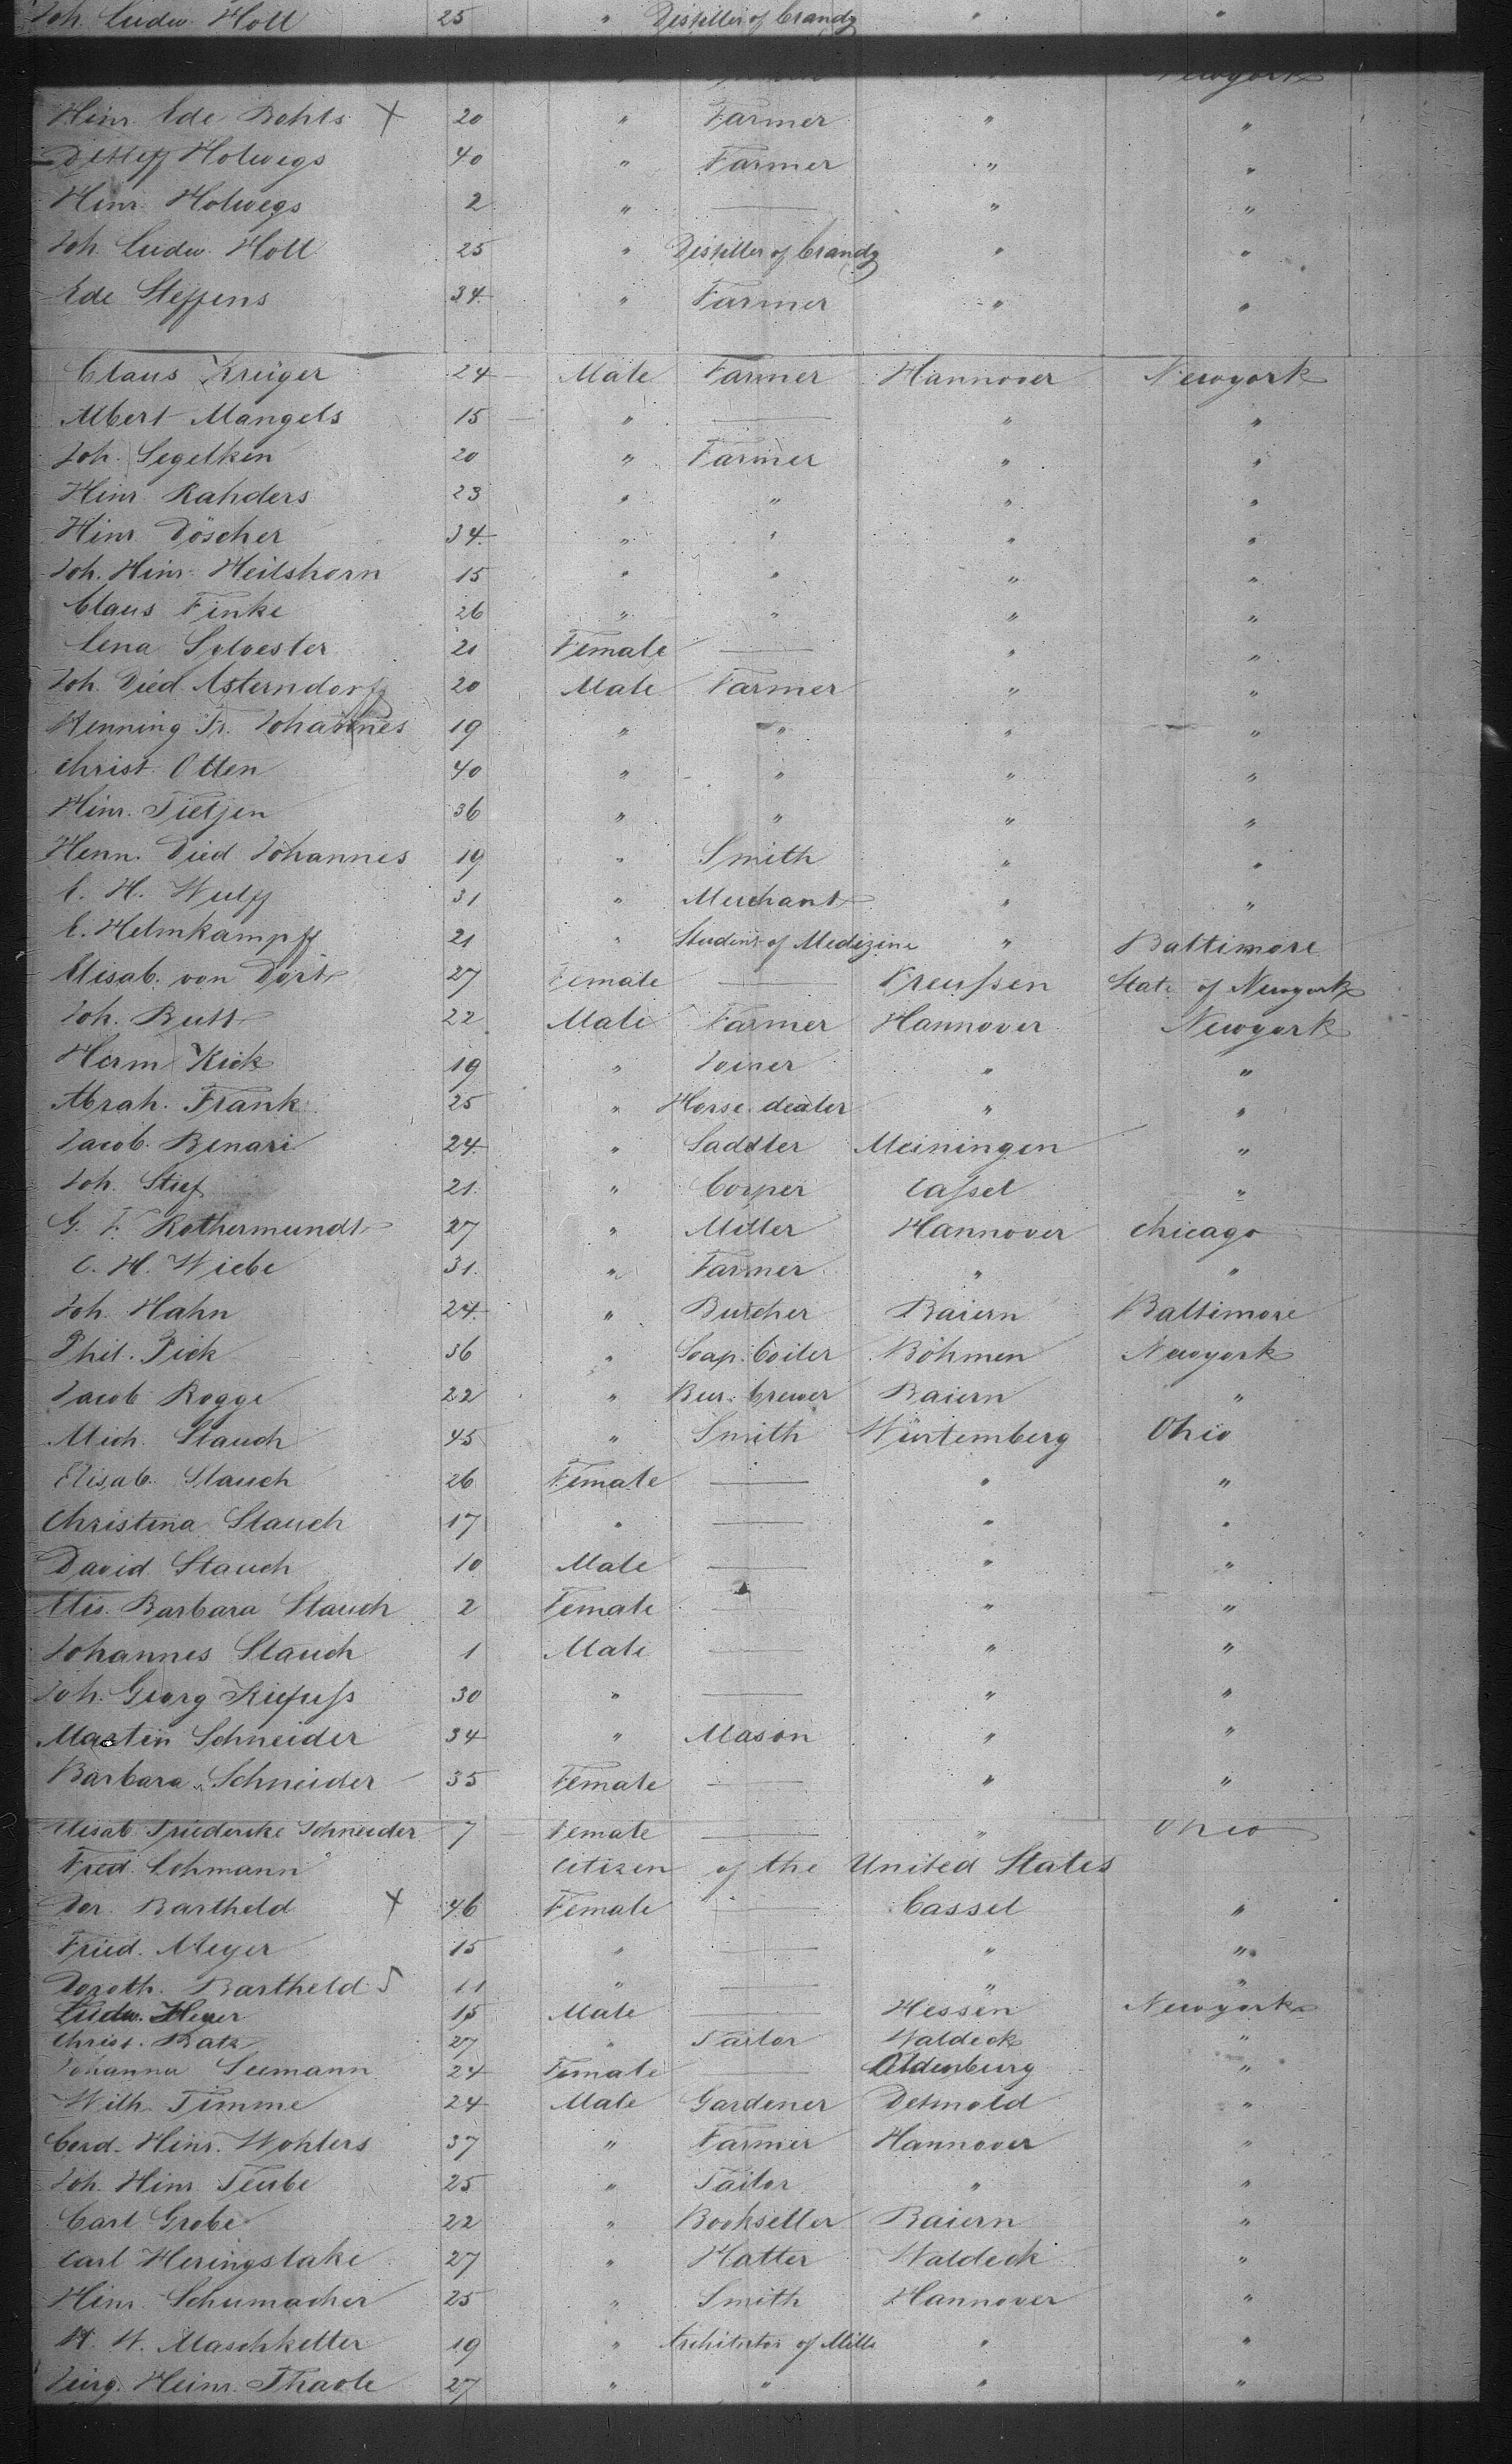 Joh. Ludw. Holl 25 " Distiller of brandy " "
Newyork
Hinr. Ede Bohls X 20 " Farmer " "
Detleff Holwegs 40 " Farmer " "
Hinr. Holwegs 2 " — " "
Joh. Ludw. Holl 25 " Distiller of brandy " "
Ede Steffens 34 " Farmer " "
Claus Krüger 24 Male Farmer Hannover Newyork
Albert Mangels 15 " — " "
Joh. Segelken 20 " Farmer " "
Hinr. Rahders 23 " " " "
Hinr. Döscher 34 " " " "
Joh. Hinr. Heilshorn 15 " " " "
Claus Finke 26 " " " "
Lena Sylvester 21 Female — " "
Joh. Died. Asterndorff 20 Male Farmer " "
Henning Fr. Johannes 19 " " " "
Christ. Otten 40 " " " "
Hinr. Tietjen 36 " " " "
Henn. Died. Johannes 19 " Smith " "
C. H. Wulff 31 " Merchant " "
E. Helmkampff 21 " Student of Medizine " Baltimore
Elisab. von Dört 27 Female — Preußen State of Newyork
Joh. Butt 22 Male Farmer Hannover Newyork
Herm. Kick 19 " Joiner " "
Abrah. Frank 25 " Horse dealer " "
Jacob Benari 24 " Saddler Meiningen "
Joh. Stief 21 " Cooper Caßel "
G. F. Rothermundt 27 " Miller Hannover Chicago
C. H. Wiebe 31 " Farmer " "
Joh. Hahn 24 " Butcher Baiern Baltimore
Phil. Pick 36 " Soap-boiler Böhmen Newyork
Jacob Rogge 22 " Beer-brewer Baiern "
Mich. Stauch 45 " Smith Würtemberg Ohio
Elisab. Stauch 26 Female — " "
Christina Stauch 17 " — " "
David Stauch 10 Male — " "
Elis. Barbara Stauch 2 Female — " "
Johannes Stauch 1 Male — " "
Joh. Georg Kiefuß 30 " — " "
Martin Schneider 34 " Mason " "
Barbara Schneider 35 Female — " "
Elisab. Friedericke Schneider 7 Female — " Ohio
Fred. Lohmann Citizen of the United States
Dor. Bartheld X 46 Female — Cassel "
Fried. Meyer 15 " — " "
Doroth. Bartheld 11 " — " "
Ludw. Heyer 15 Male — Hessen Newyork
Christ. Batz 27 " Tailor Waldeck "
Johanna Seemann 24 Female — Oldenburg "
Wilh. Timme 24 Male Gardener Detmold "
Gerd. Hinr. Wohlers 37 " Farmer Hannover "
Joh. Hinr. Teube 25 " Tailor " "
Carl Grobe 22 " Bookseller Baiern "
Carl Heringslake 27 " Hatter Waldeck "
Hinr. Schumacher 25 " Smith Hannover "
H. W. Maschkelter 19 " Architector of Mills " "
Jürg. Heinr. Thaole 27 " " " "